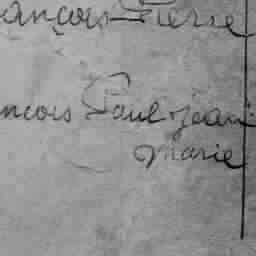 ançois Pierre
ncois Paul jean
marie